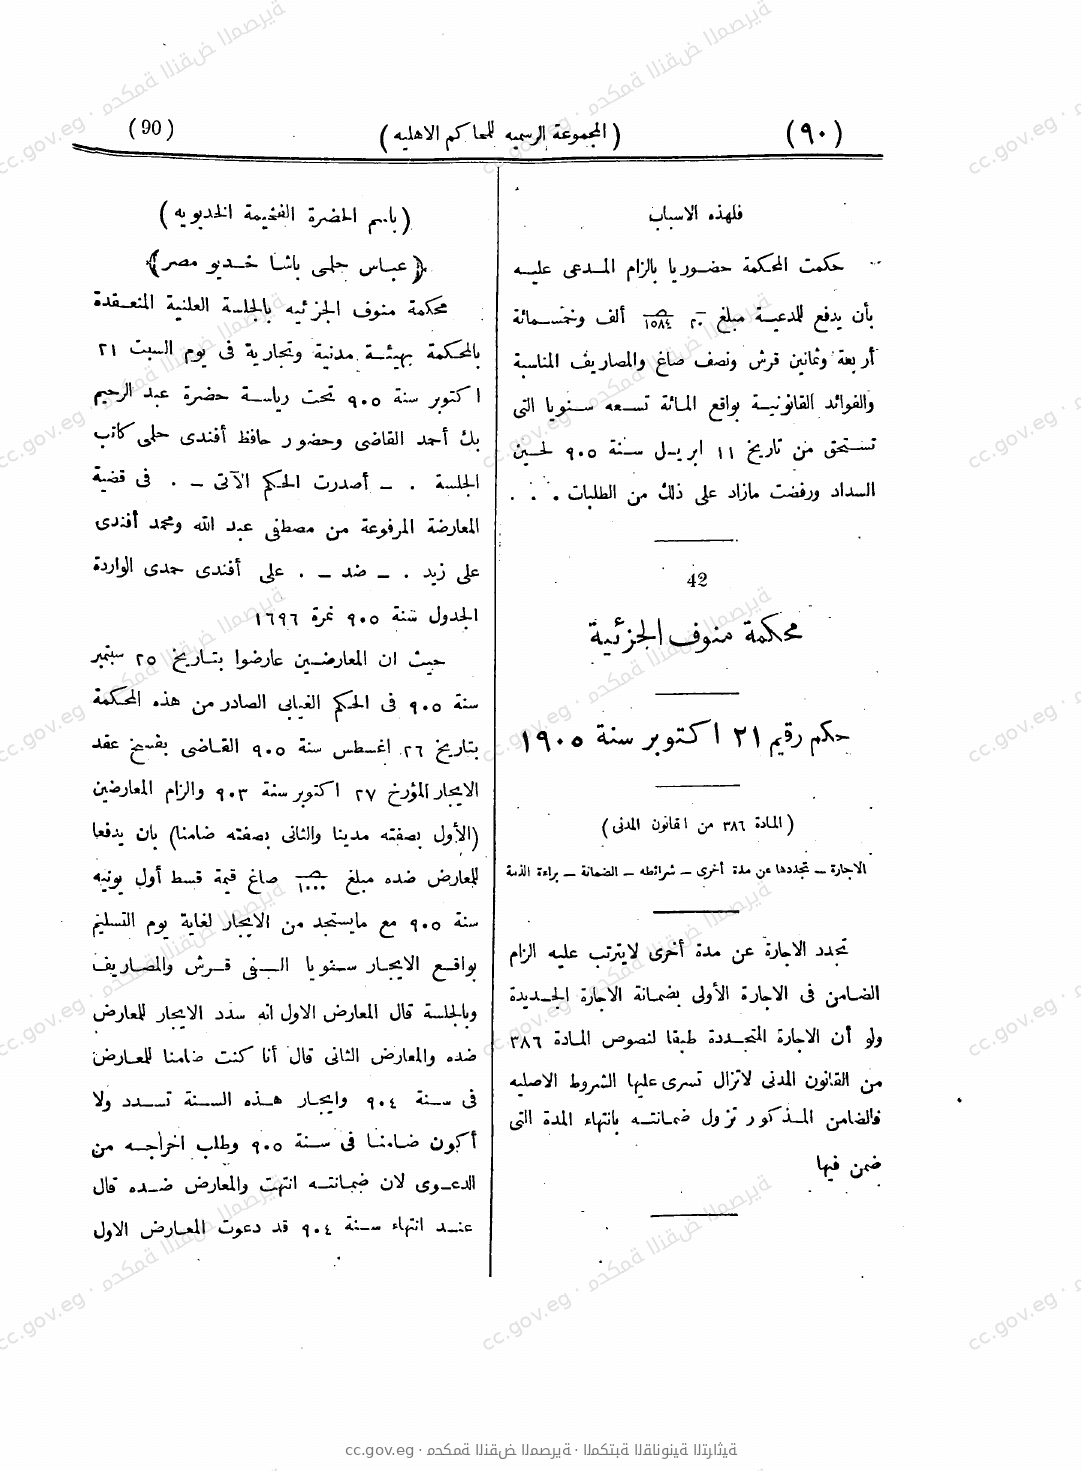 (٩٠)
(المجموعة الرسميه للمحاكم الاهليه)
(90)
فلهذه الاسباب
حكمت المحكمة حضوريا بالزام المدعى عليه
بأن يدفع للمدعية مبلغ ٢٠ ١٥٨٤ ألف وخمسمائة
أربعة وثمانين قرش ونصف صاغ والمصاريف المناسبة
والفوائد القانونية بواقع المائة تسعه سنويا التى
تستحق من تاريخ ١١ ابريل سنة ٩٠٥ لحين
السداد ورفضت مازاد على ذلك من الطلبات . . .
42
محكمة منوف الجزئية
حكم رقيم ٢١ اكتوبر سنة ١٩٠٥
(المادة ٣٨٦ من القانون المدنى)
الاجارة – تجددها عن مدة أخرى – شرائطه – الضمانة – براءة الذمة
تجدد الاجارة عن مدة أخرى لايترتب عليه الزام
الضامن فى الاجارة الأولى بضمانة الاجارة الجديدة
ولو أن الاجارة المتجددة طبقا لنصوص المادة ٣٨٦
من القانون المدنى لاتزال تسرى عليها الشروط الاصليه
فالضامن المذكور تزول ضمانته بانتهاء المدة التى
ضمن فيها
(باسم الحضرة الفخيمة الخديويه)
﴿عباس حلمى باشا خديو مصر﴾
محكمة منوف الجزئيه بالجلسة العلنية المنعقدة
بالمحكمة بهيئة مدنية وتجارية فى يوم السبت ٢١
اكتوبر سنة ٩٠٥ تحت رياسة حضرة عبد الرحيم
بك أحمد القاضى وحضور حافظ أفندى حلمى كاتب
الجلسة . – أصدرت الحكم الآتى – . فى قضية
المعارضة المرفوعة من مصطفى عبد الله ومحمد أفندى
على زيد . – ضد – . على أفندى حمدى الواردة
الجدول سنة ٩٠٥ نمرة ١٦٩٦
حيث ان المعارضين عارضوا بتاريخ ٢٥ سبتمبر
سنة ٩٠٥ فى الحكم الغيابى الصادر من هذه المحكمة
بتاريخ ٢٦ اغسطس سنة ٩٠٥ القاضى بفسخ عقد
الايجار المؤرخ ٢٧ اكتوبر سنة ٩٠٣ والزام المعارضين
(الأول بصفته مدينا والثانى بصفته ضامنا) بان يدفعا
للمعارض ضده مبلغ ١٠٠٠ صاغ قيمة قسط أول يونيه
سنة ٩٠٥ مع مايستجد من الايجار لغاية يوم التسليم
بواقع الايجار سنويا الفى قرش والمصاريف
وبالجلسة قال المعارض الاول انه سدد الايجار للمعارض
ضده والمعارض الثانى قال أنا كنت ضامنا للمعارض
فى سنة ٩٠٤ وايجار هذه السنة تسدد ولا
أكون ضامنا فى سنة ٩٠٥ وطلب اخراجه من
الدعوى لان ضمانته انتهت والمعارض ضده قال
عند انتهاء سنة ٩٠٤ قد دعوت المعارض الاول
cc.gov.eg · محكمة النقض المصرية · المكتبة القانونية التراثية